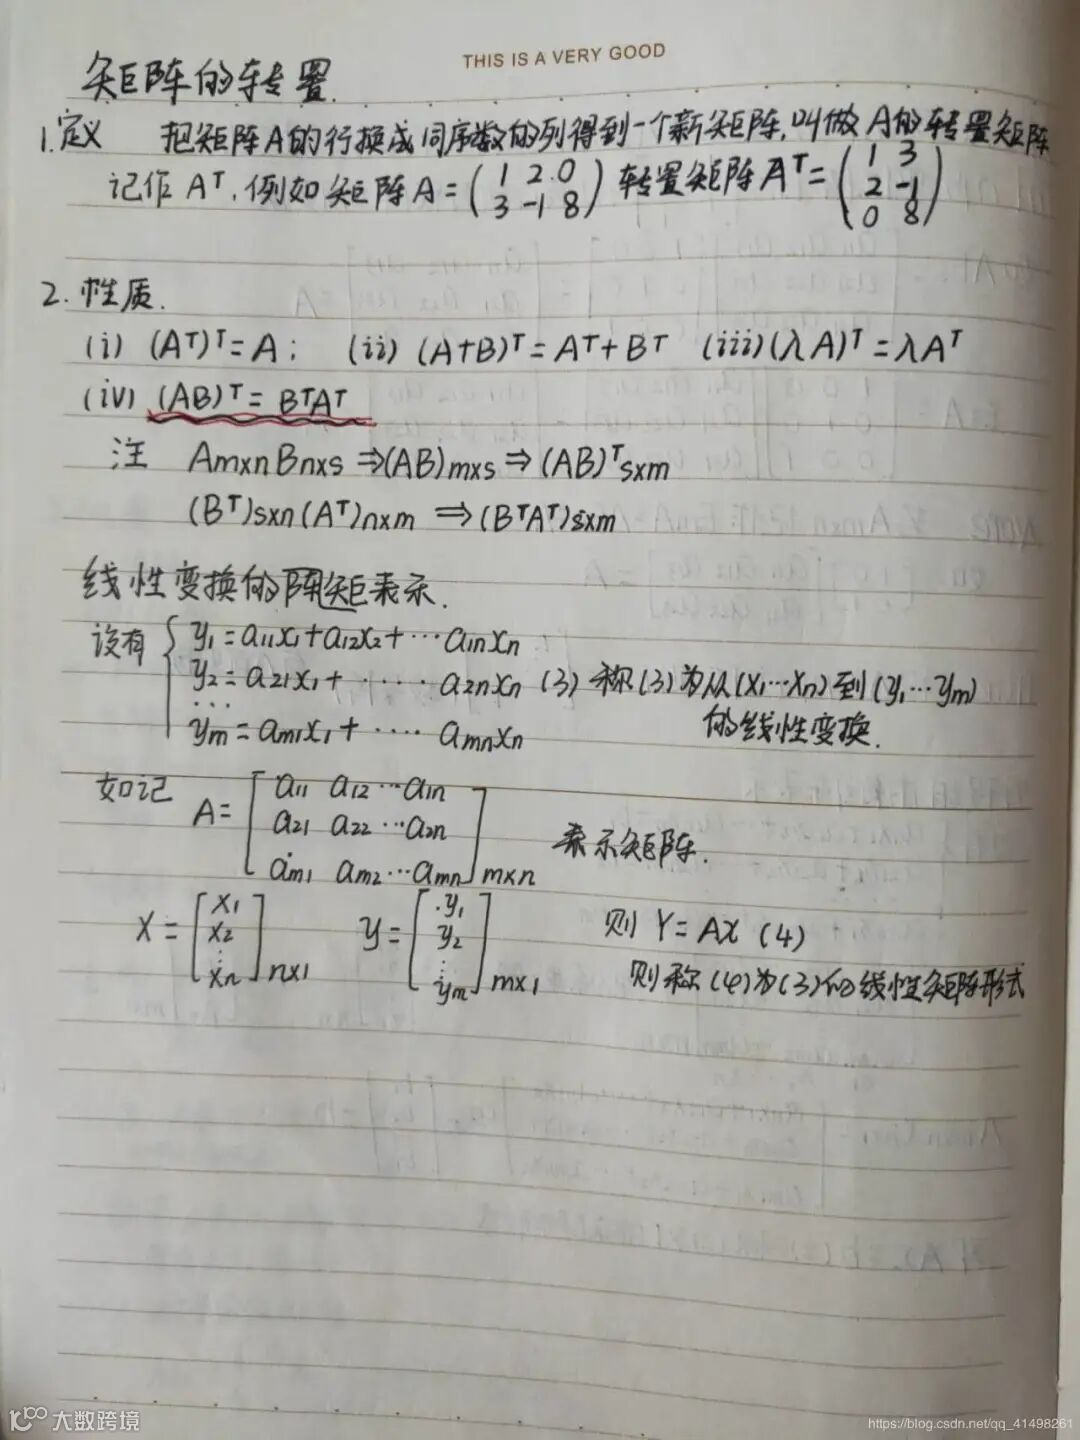 THIS IS A VERY GOOD
矩阵的转置.
1.定义 把矩阵A的行换成同序数的列得到一个新矩阵,叫做A的转置矩阵
记作 Aᵀ.例如矩阵A=(1 2 0; 3 -1 8) 转置矩阵Aᵀ=(1 3; 2 -1; 0 8)
2.性质.
(i) (Aᵀ)ᵀ=A; (ii) (A+B)ᵀ=Aᵀ+Bᵀ (iii)(λA)ᵀ=λAᵀ
(iv) (AB)ᵀ=BᵀAᵀ
注 Am×n Bn×s ⇒(AB)m×s⇒(AB)ᵀs×m
(Bᵀ)s×n(Aᵀ)n×m ⇒(BᵀAᵀ)s×m
线性变换的阵矩表示.
设有 { y₁=a₁₁x₁+a₁₂x₂+⋯a₁nxn
y₂=a₂₁x₁+⋯⋯a₂nxn (3) 称(3)为从(x₁⋯xn)到(y₁⋯ym)
⋯
ym=am₁x₁+⋯⋯amnxn 的线性变换.
如记 A=[a₁₁ a₁₂⋯a₁n
a₂₁ a₂₂⋯a₂n
am₁ am₂⋯amn]m×n 表示矩阵.
X=[x₁ x₂ ⋮ xn]n×1 y=[y₁ y₂ ⋮ ym]m×1 则 Y=AX (4)
则称(4)为(3)的线性矩阵形式
大数跨境
https://blog.csdn.net/qq_41498261